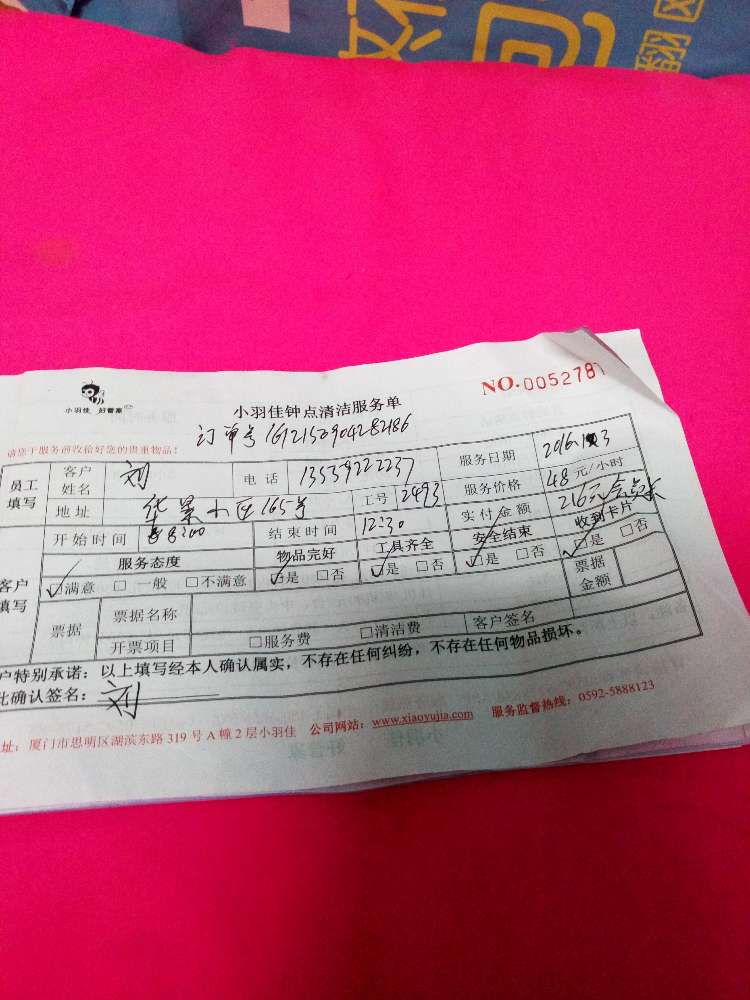 翻
NO.0052787
小羽佳 好管家
小羽佳钟点清洁服务单
订单号 1612150904282486
请您于服务前收拾好您的贵重物品!
员工填写 客户姓名 刘 电话 13559222237 服务日期
地址 华景小区165号 工号 2493 服务价格 48 元/小时
开始时间 8:00 结束时间 12:30 实付金额 216元 收到卡片
客户填写 服务态度 物品完好 工具齐全 安全结束 ☑是 □否
☑满意 □一般 □不满意 ☑是 □否 ☑是 □否 ☑是 □否 票据金额
票据 票据名称
开票项目 □服务费 □清洁费 客户签名
户特别承诺:以上填写经本人确认属实,不存在任何纠纷,不存在任何物品损坏。
此确认签名: 刘
址:厦门市思明区湖滨东路 319 号 A 幢 2 层小羽佳 公司网站:www.xiaoyujia.com 服务监督热线:0592-5888123